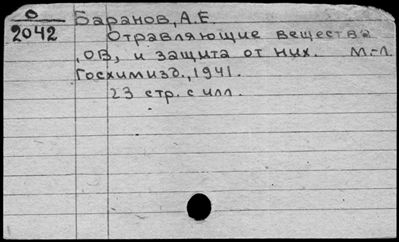 О
2042
Баранов, А.Е.
Отравляющие вещества
, ОВ, и защита от них. М.-Л.
Госхимизд., 1941.
23 стр. с илл.